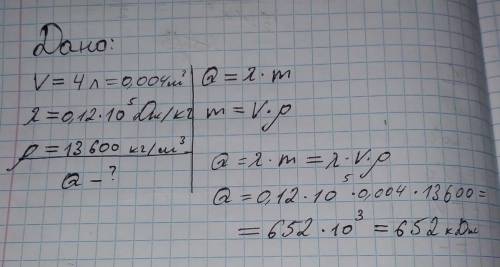 Дано:
V = 4 л = 0,004 м³
λ = 0,12 · 10⁵ Дж/кг
ρ = 13600 кг/м³
Q – ?
Q = λ · m
m = V · ρ
Q = λ · m = λ · V · ρ
Q = 0,12 · 10⁵ · 0,004 · 13600 =
= 652 · 10³ = 652 кДж